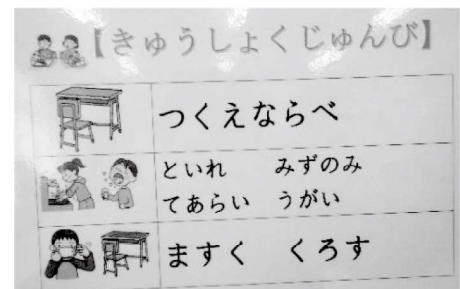 【きゅうしょくじゅんび】
つくえならべ
といれ　みずのみ
てあらい　うがい
ますく　くろす